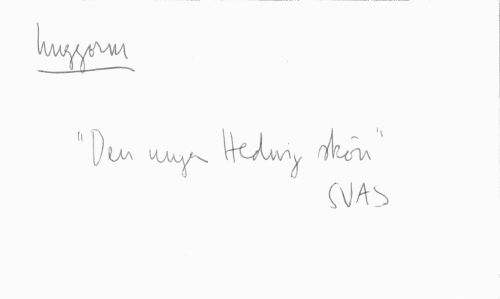 huggorm
"Den unga Hedvig skön"
SVAS